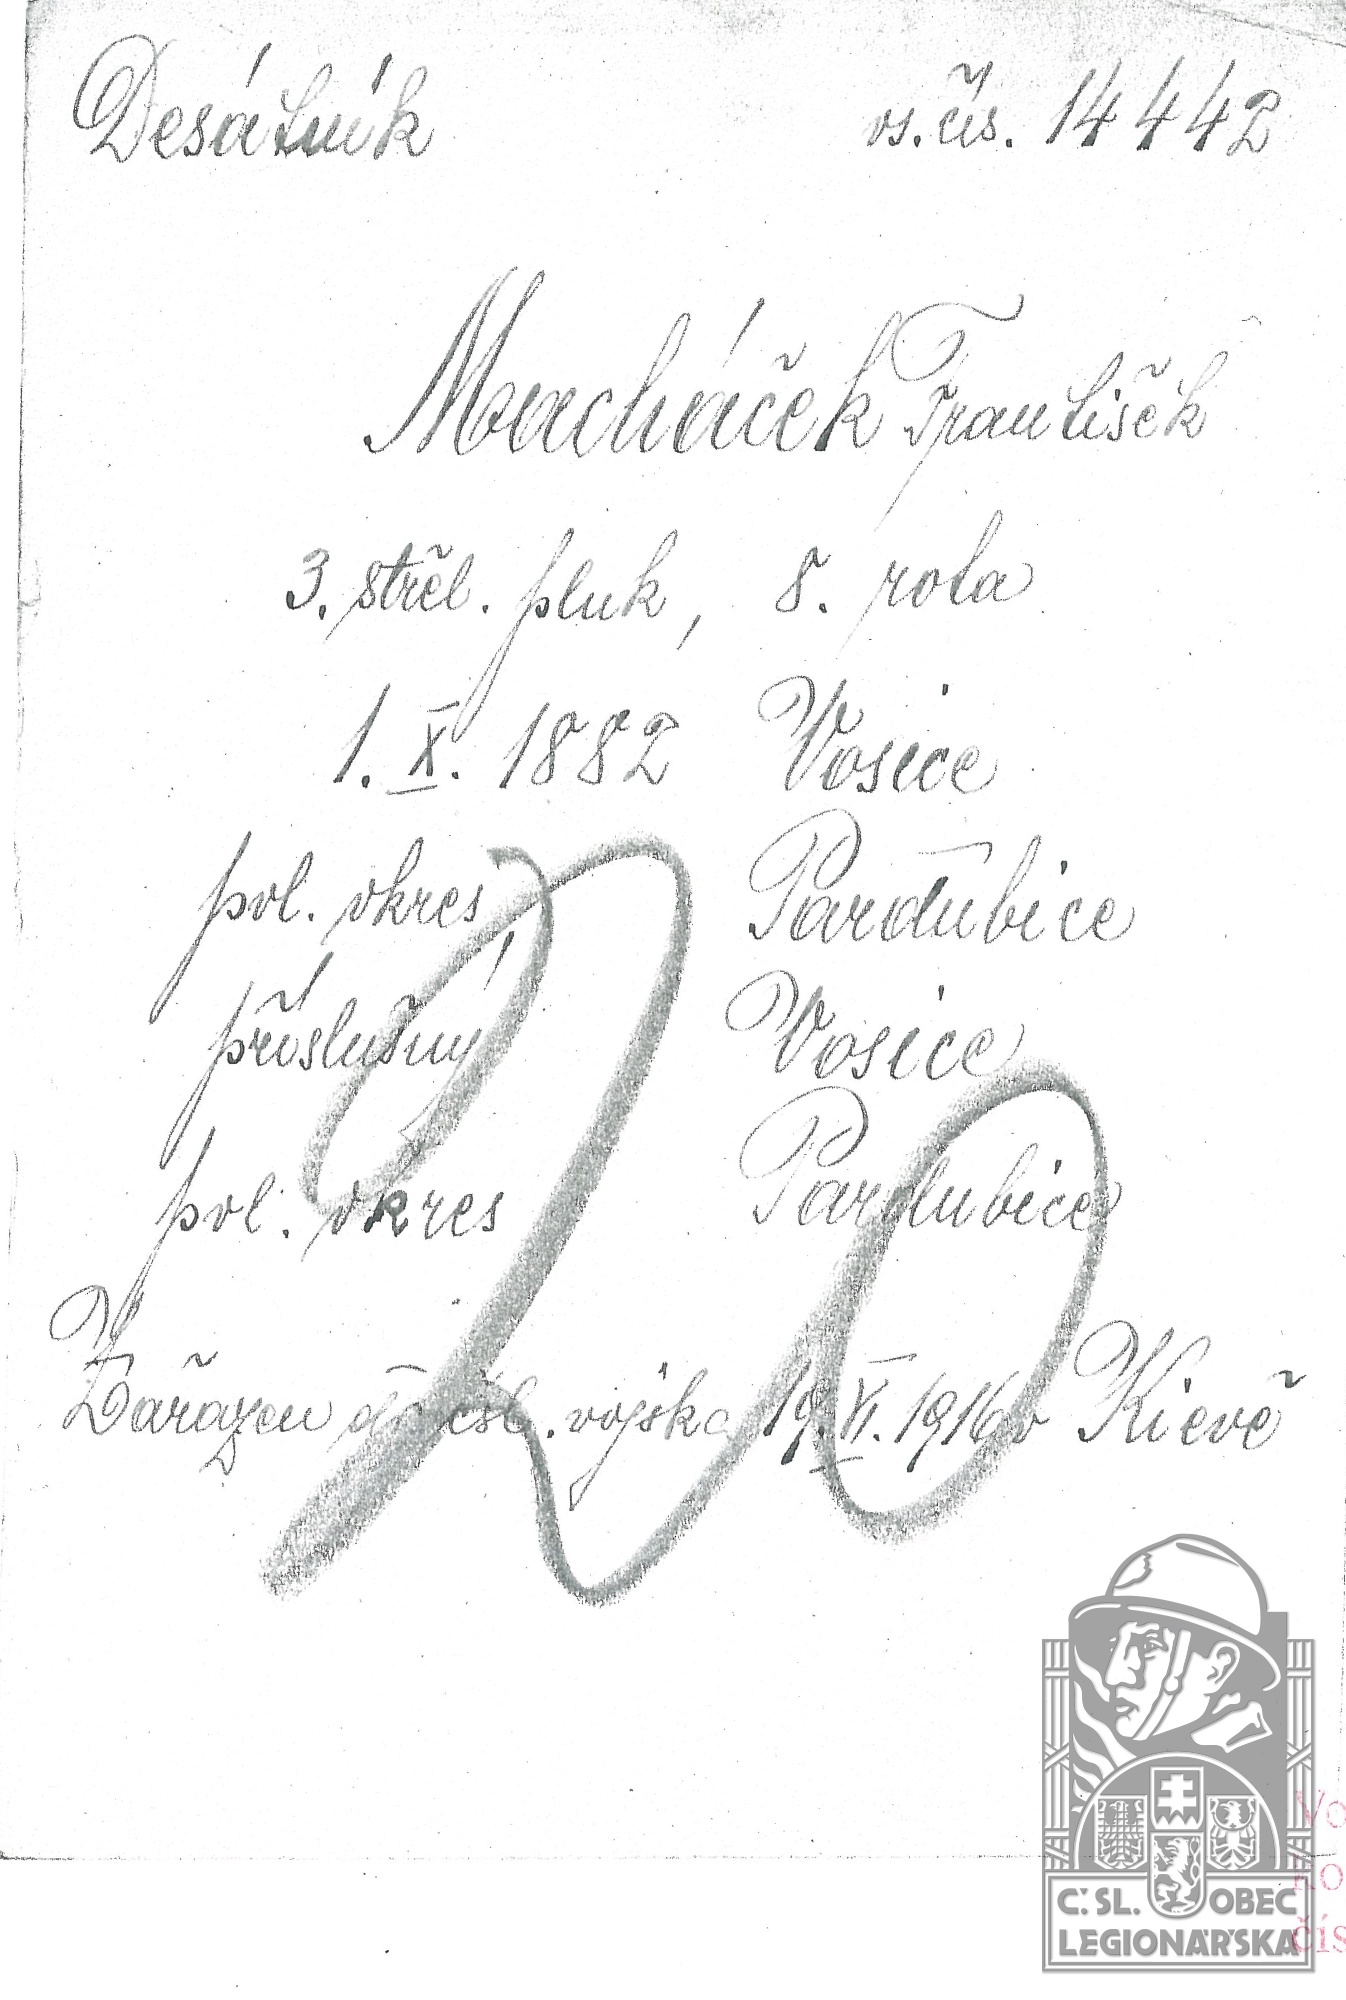 Desátník vs. čís. 14442
Macháček František
3. střel. pluk, 8. rota
1. X. 1882 Vosice
pol. okres Pardubice
příslušný Vosice
pol. okres Pardubice
Zařazen do čsl. vojska 19. VI. 1916 v Kievě
20
Č.SL. OBEC
LEGIONÁŘSKÁ